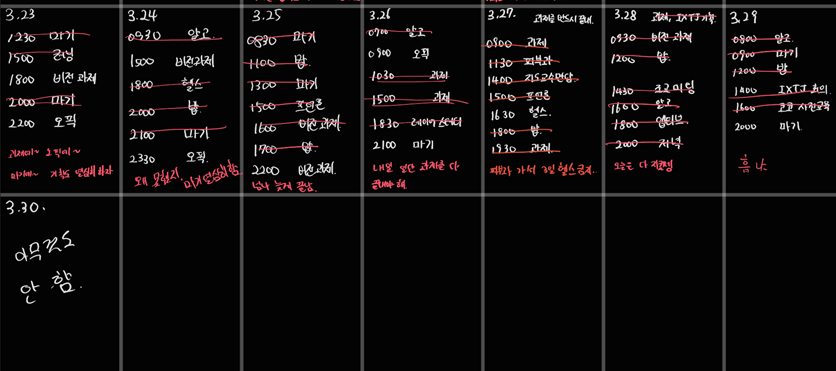 3.23
1230 마기
1500 러닝
1800 비전과제
2000 마기
2200 오픽
3.24
0930 알고
1500 비전과제
1800 헬스
2000 밥
2100 마기
2330 오픽.
왜 못했지. 마기열심히함
3.25
0830 마기
1100 밥.
1300 마기
1500 프런론
1600 비전과제
1700 밥
2200 비전과제.
넘나 늦게 끝남
3.26
0700 알고
0900 오픽
1030 과제
1500 과제
1830 스터디
2100 마기
내일 일단 과제를 다
끝내야 해.
3.27. 과제를 반드시 끝내.
0800 과제
1130 피부과
1400 지도교수면담
1500 프런론
1630 헬스.
1800 밥.
1930 과제.
피부과 가서 2일 헬스 금지..
3.28 과제, IXTJ 기획
0930 비전과제
1200 밥.
1430 코코미팅
1600 알고
1800 임티브
2000 저녁
오늘은 다 지켰띵
3.29
0800 알고.
0900 마기
1200 밥
1400 IXTJ 회의
1600 코코 사전교육
2000 마기.
흠 냐.
3.30.
아무것도
안 함.